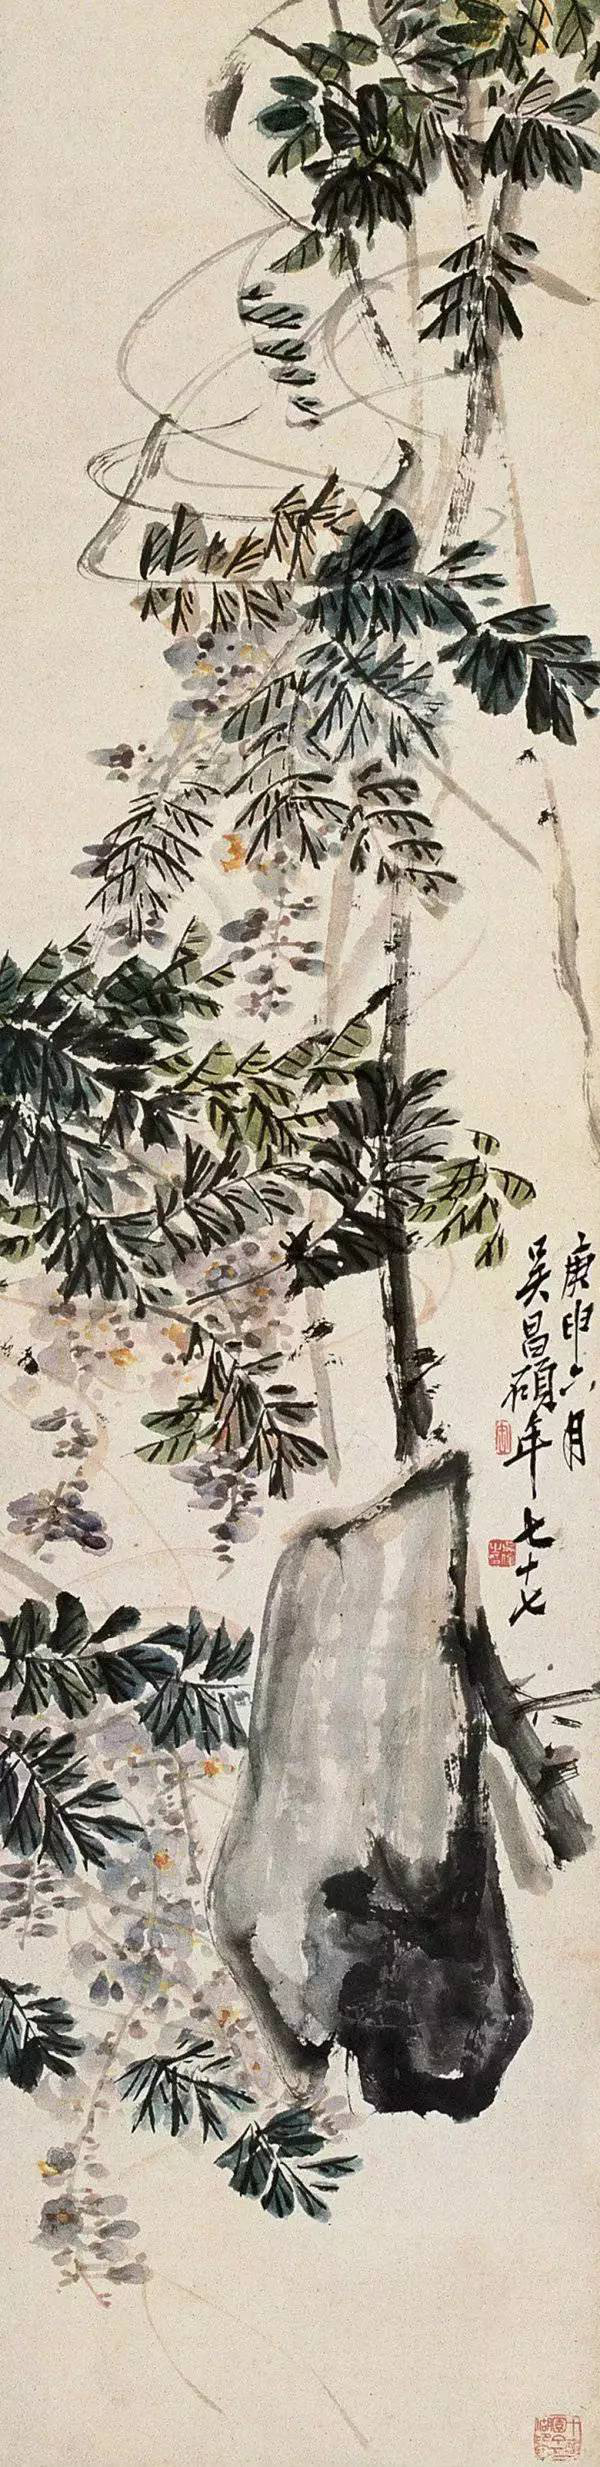 庚申六月
吴昌硕年七十七